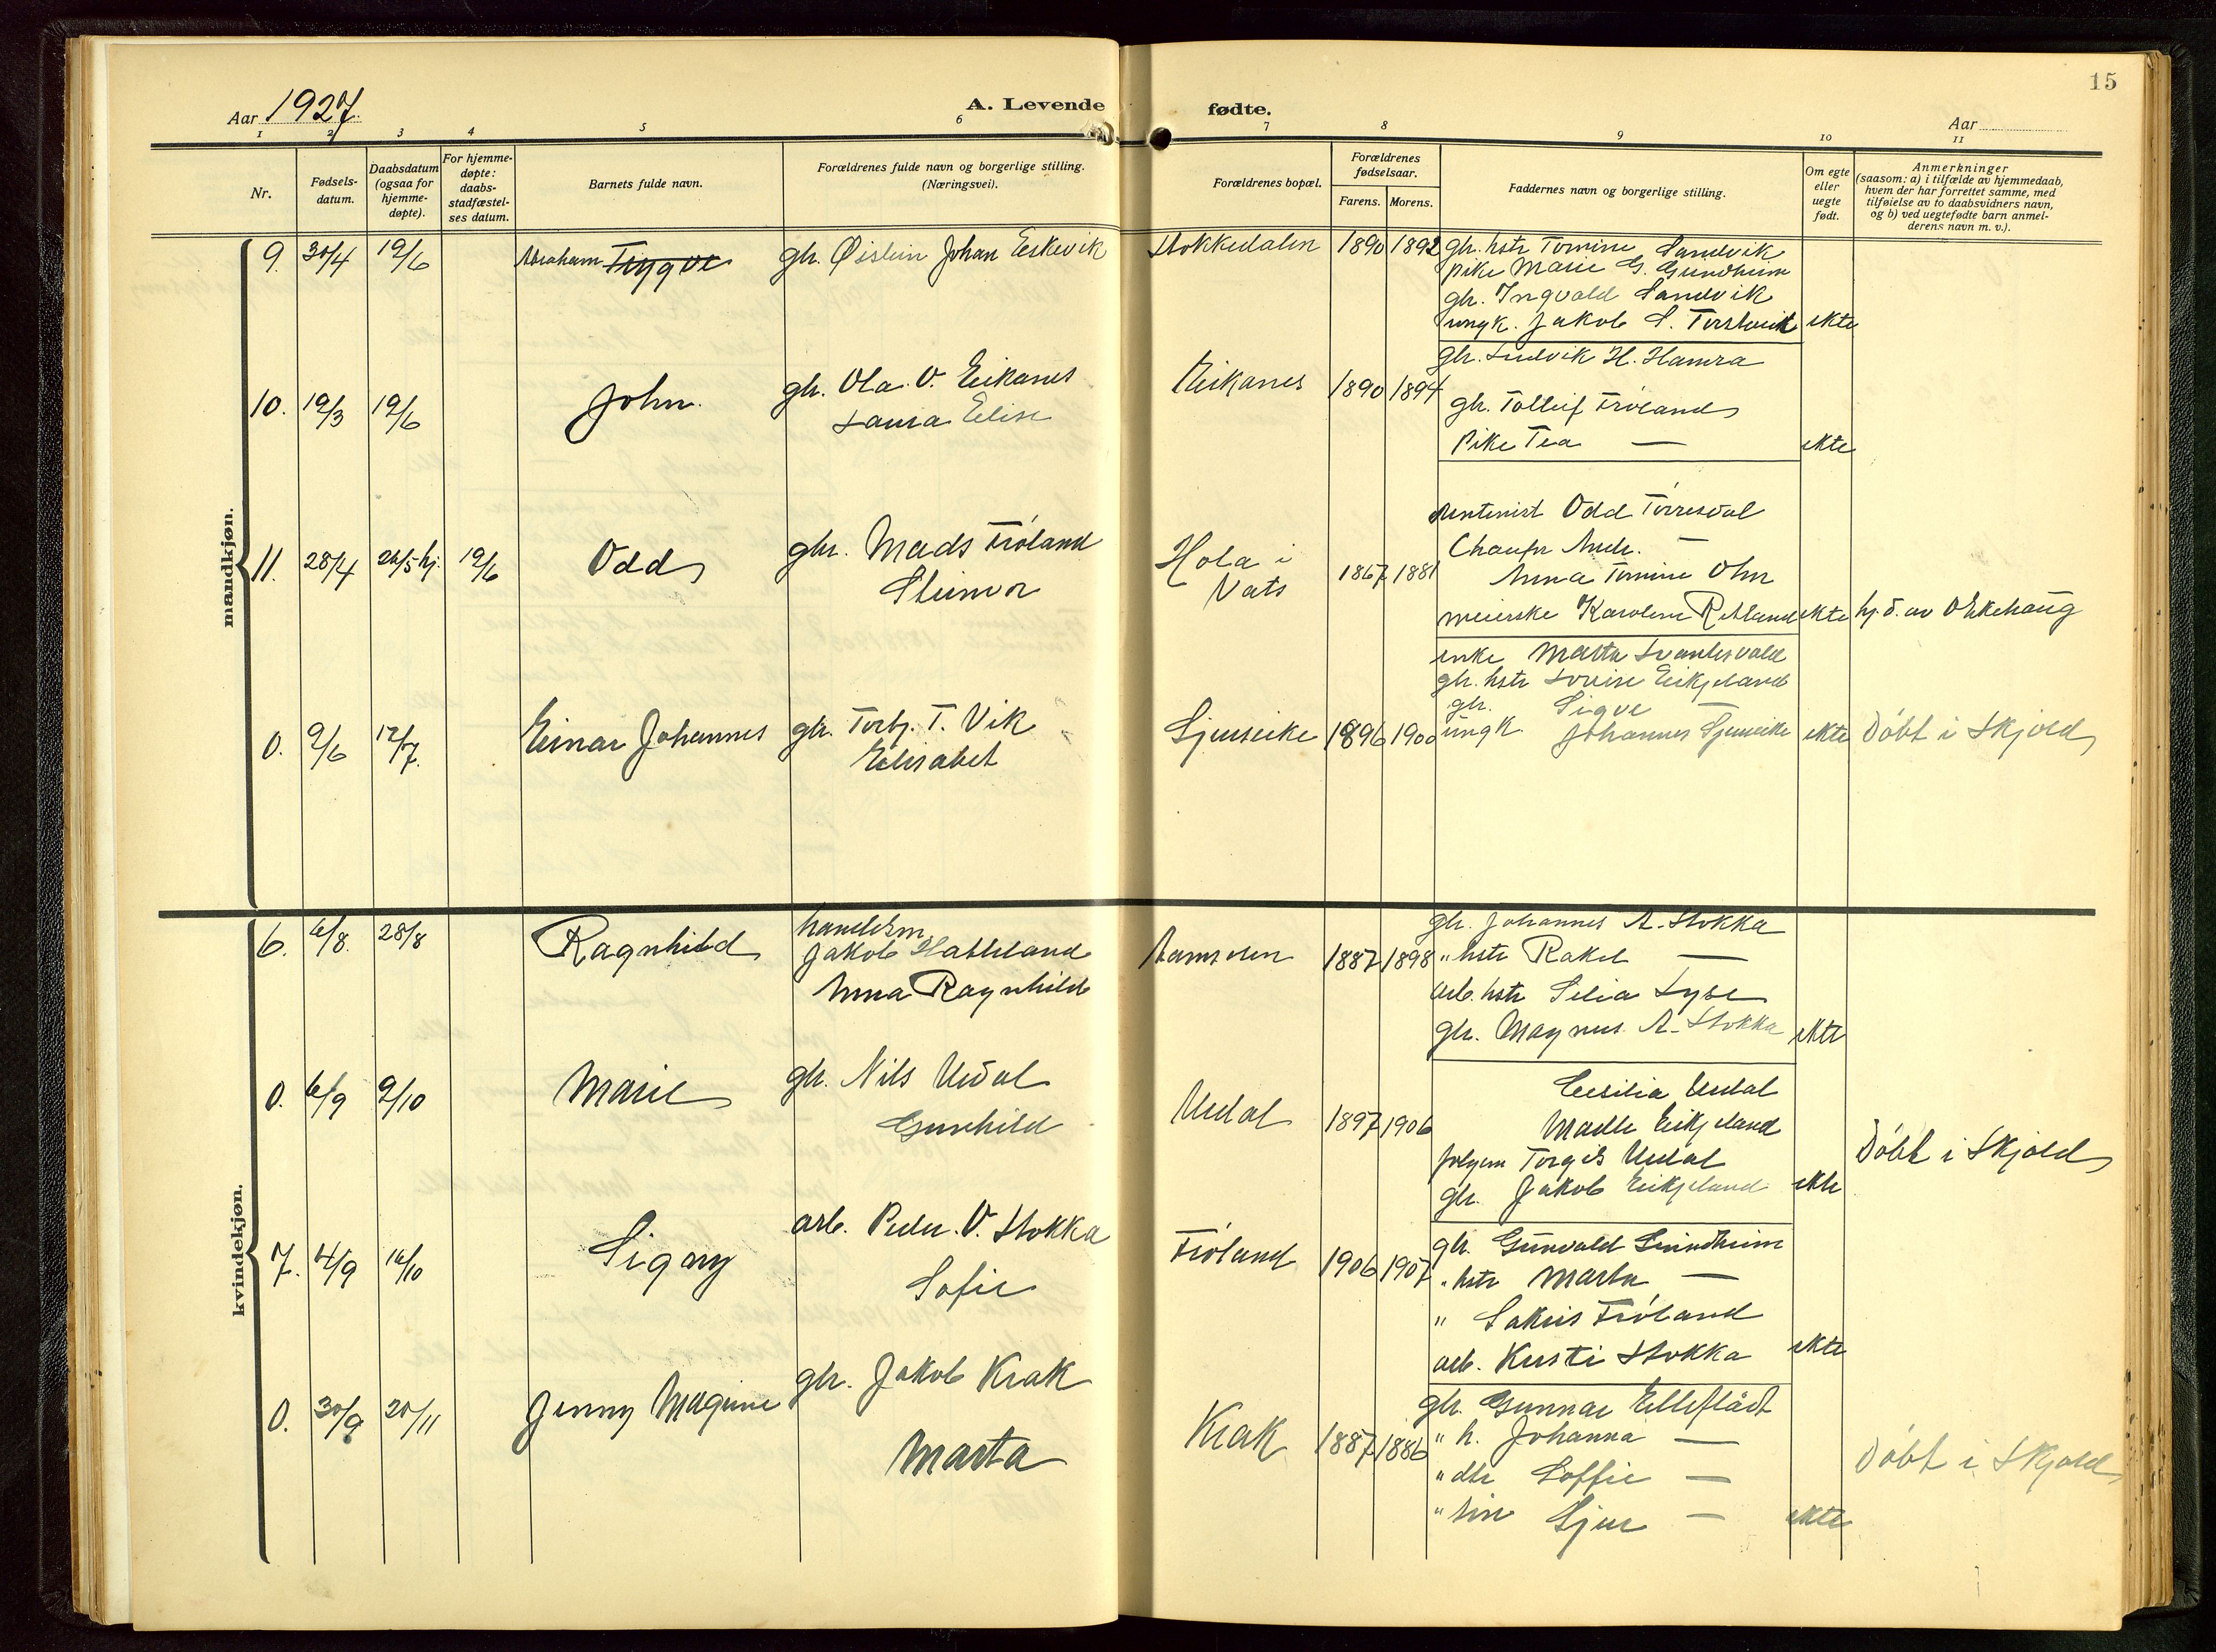 15
Aar 1927.
A. Levende
fødte.
Aar
1 2 3 4 5 6 7 8 9 10 11
Nr.
Fødsels-
datum.
Daabsdatum
(ogsaa for
hjemme-
døpte).
For hjemme-
døpte:
daabs-
stadfæstel-
ses datum.
Barnets fulde navn.
Forældrenes fulde navn og borgerlige stilling.
(Næringsvei).
Forældrenes bopæl.
Forældrenes
fødselsaar.
Farens. Morens.
Faddernes navn og borgerlige stilling.
Om egte
eller
uegte
født.
Anmerkninger
(saasom: a) i tilfælde av hjemmedaab,
hvem der har forrettet samme, med
tilføielse av to daabsvidners navn,
og b) ved uegtefødte barn anmel-
derens navn m. v.).
mandkjøn.
9. 30/4 19/6 Abraham Trygve gbr. Øistein Johan Eskevik Stokkedalen 1890 1892 gbr. hstr Tomine Sandvik
pike Marie G. Grundheim
gbr. Ingvald Sandvik
ungk. Jakob S. ekte
10. 19/3 19/6 John. gbr. Ola O. Eikanes Eikanes 1890 1894 gbr. Ludvik H. Hamra
Laura Elise
gbr. Tolleif Frøland
Pike Tea — ekte
11. 28/4 26/5 hj. 19/6 Odd gbr. Mads Frøland Hola i Vats 1867 1881
Steinvor
Odd Torresdal
Chaufør Andr. —
Anna Tomine Ohn
meierske Karoline Retland ekte hj. d. av O Ekehaug
0. 9/6 17/7. Einar Johannes gbr. Torbj. T. Vik Sjurseike 1896 1900
Elisabet
enke Marta Svantesvold
gbr. hstr Lovise Eikjeland
gbr. Sigve
ungk. Johannes Sjurseike ekte Døbt i Skjold
kvindekjøn.
6. 6/8. 28/8 Ragnhild handelsm. Jakob Hatteland 1887 1898
Anna Ragnhild
gbr. Johannes A. Stokka
" hstr Rakel —
arb. hstr Silia Lyse
gbr. Magnus A. Stokka ekte
0. 6/9 9/10 Marie gbr. Nils Undal Undal 1897 1906
Gunhild
Cecilia Undal
Malle Eikjeland
Torgils Undal
gbr. Jakob Eikjeland ekte Døbt i Skjold
7. 4/9 16/10 Signy arb. Peder O. Stokka Frøland 1906 1907
Sofie
gbr. Gunvald Grindheim
" hstr Marta —
" Sakris Frøland
arb. Kristi Stokka ekte
0. 30/9 20/11 Jenny Magnine gbr. Jakob Krak Krak 1887 1886
Marta
gbr. Gunnar Ellefládt
" h. Johanna —
" dtr Soffie —
" søn Sjur — ekte Døbt i Skjold